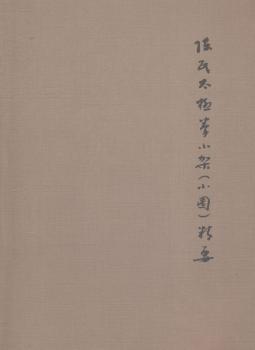 陈氏太极拳小架(小圈)精要